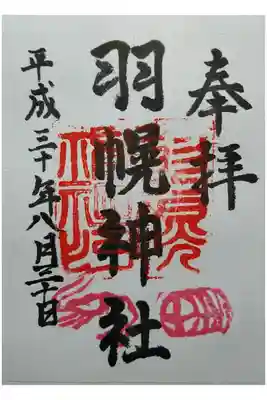 奉拝
羽幌神社
平成三十年八月三十日